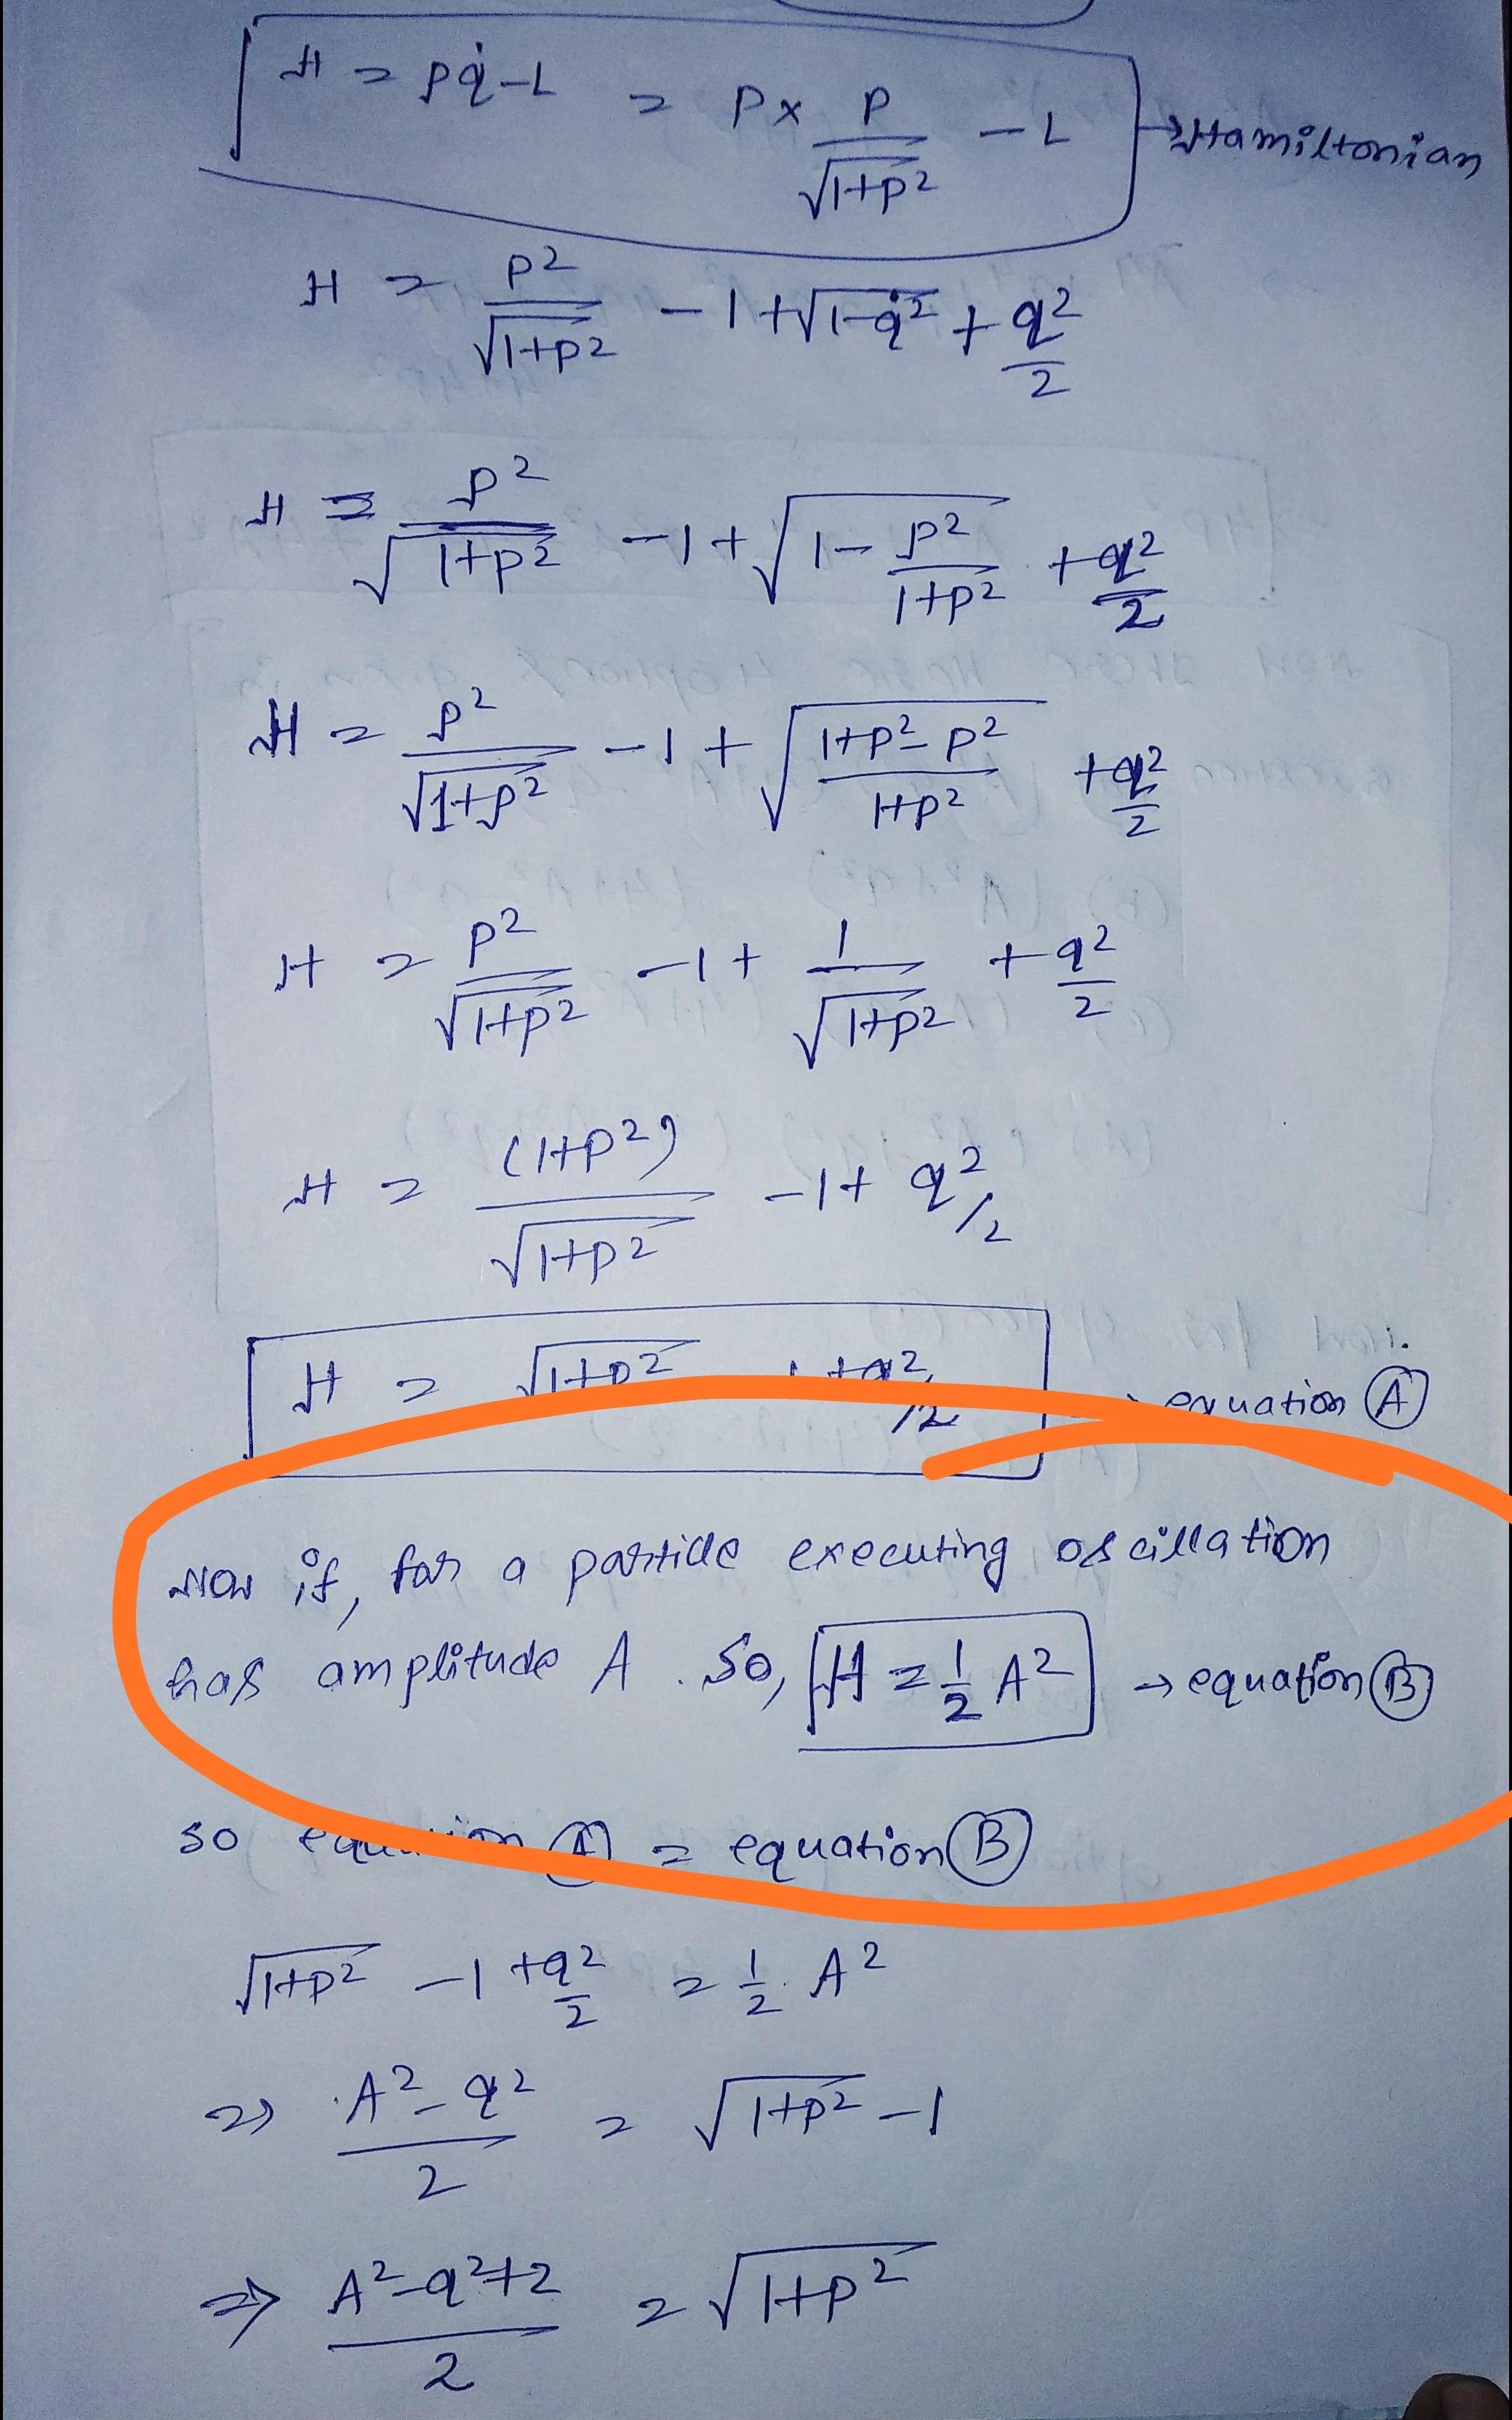 H = pq̇ - L = p × p/√(1+p²) - L → Hamiltonian
H = p²/√(1+p²) - 1 + √(1-q̇²) + q²/2
H = p²/√(1+p²) - 1 + √(1 - p²/(1+p²)) + q²/2
H = p²/√(1+p²) - 1 + √((1+p²-p²)/(1+p²)) + q²/2
H = p²/√(1+p²) - 1 + 1/√(1+p²) + q²/2
H = (1+p²)/√(1+p²) - 1 + q²/2
H = √(1+p²) - 1 + q²/2 → equation (A)
Now if, for a particle executing oscillation
has amplitude A. So, H = 1/2 A² → equation (B)
so equation (A) = equation (B)
√(1+p²) - 1 + q²/2 = 1/2 · A²
⇒ (A² - q²)/2 = √(1+p²) - 1
⇒ (A² - q² + 2)/2 = √(1+p²)